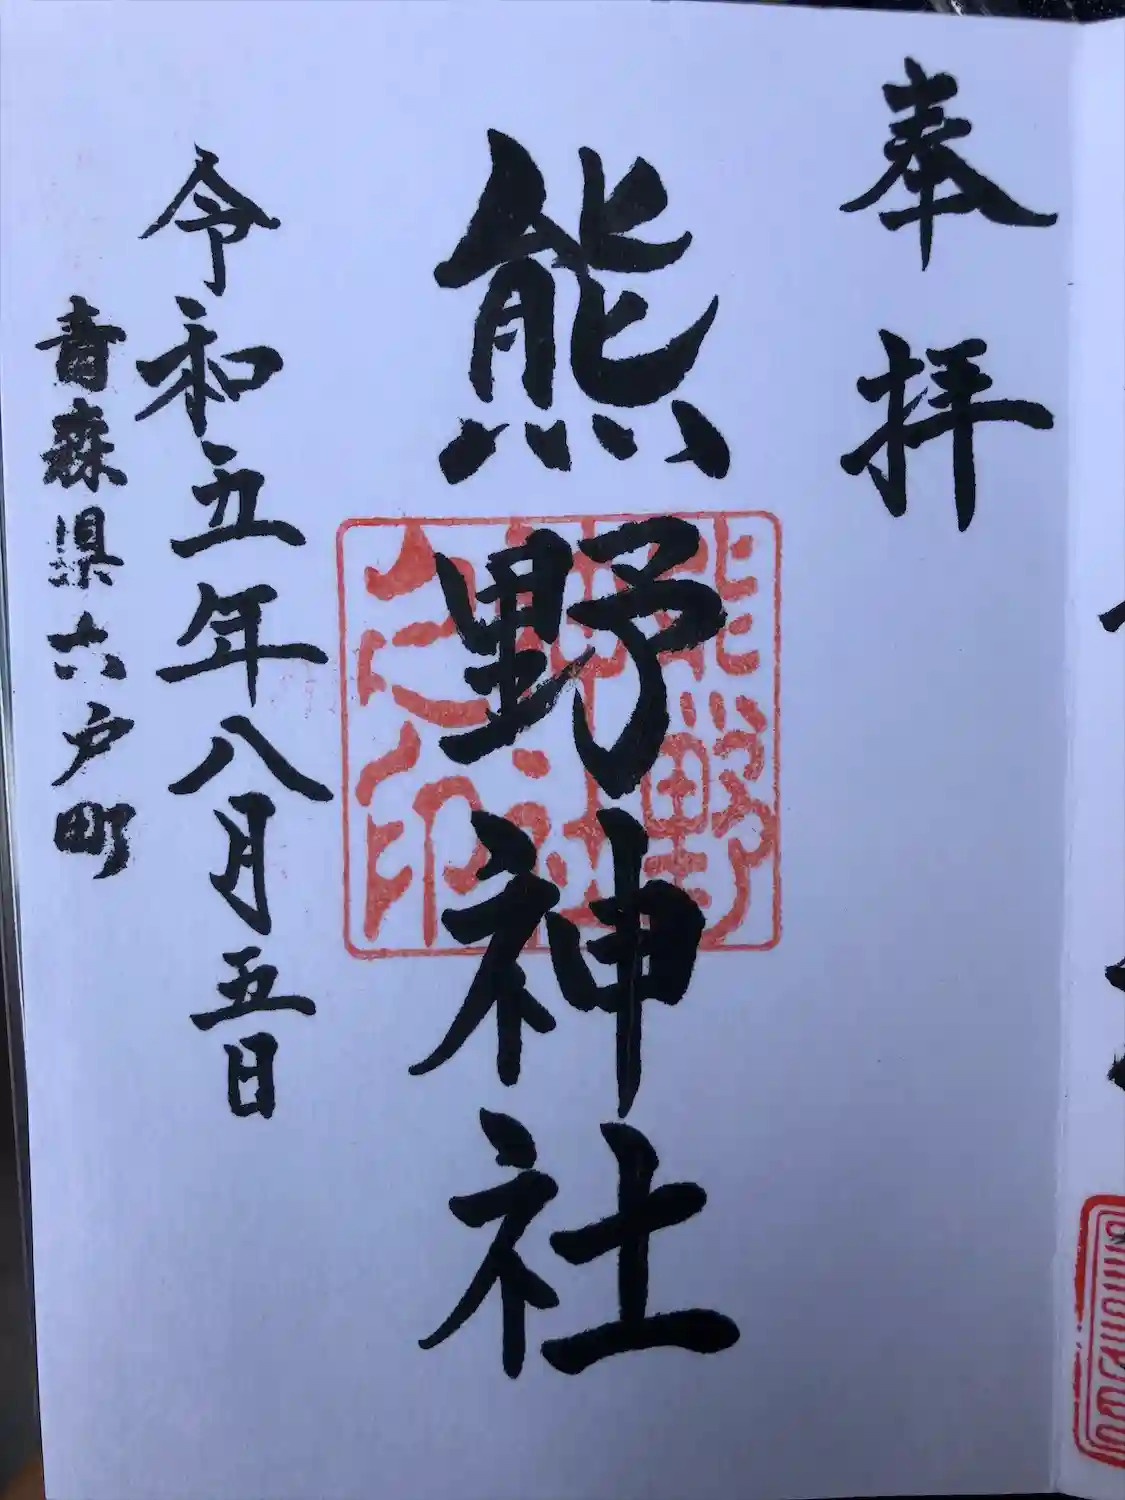 奉拝
熊野神社
熊野
神社
之印
令和五年八月五日
青森県六戸町